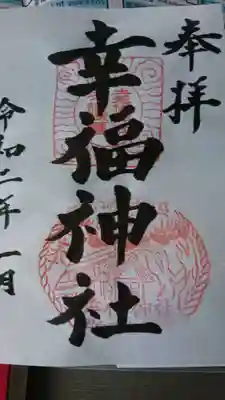 奉拝
幸福神社
令和二年一月